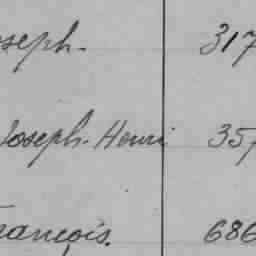 oseph. 317
Joseph-Henri 357
rançois. 686